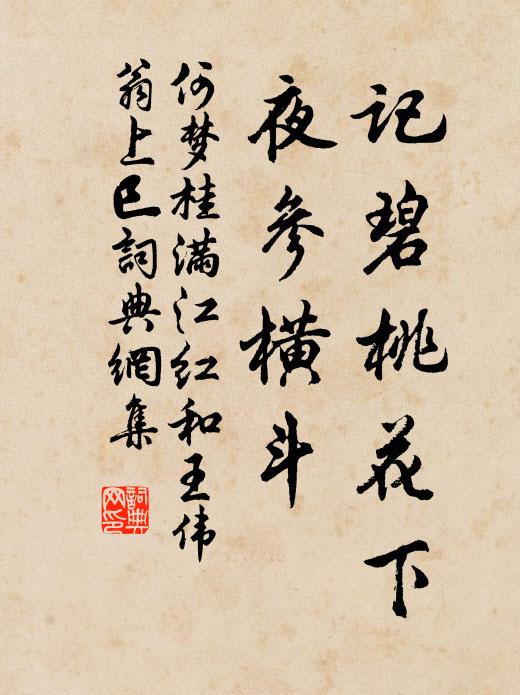 记碧桃花下
夜参横斗
何梦桂满江红和王伟
翁上巳詞典網集
詞典
网印